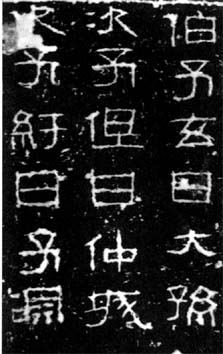 伯子玄曰大孫
次子但曰仲城
次子紆曰子淵